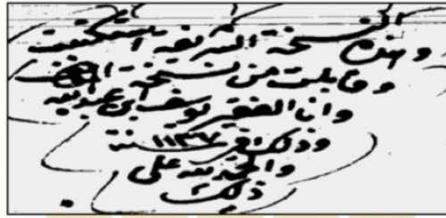 وهذه النسخة الشريفة استكتبت
وقابلت من نسخة
وانا الفقير يوسف بن عبد الله
وذلك في سنة ١١٣٧
والحمد لله على
ذلك